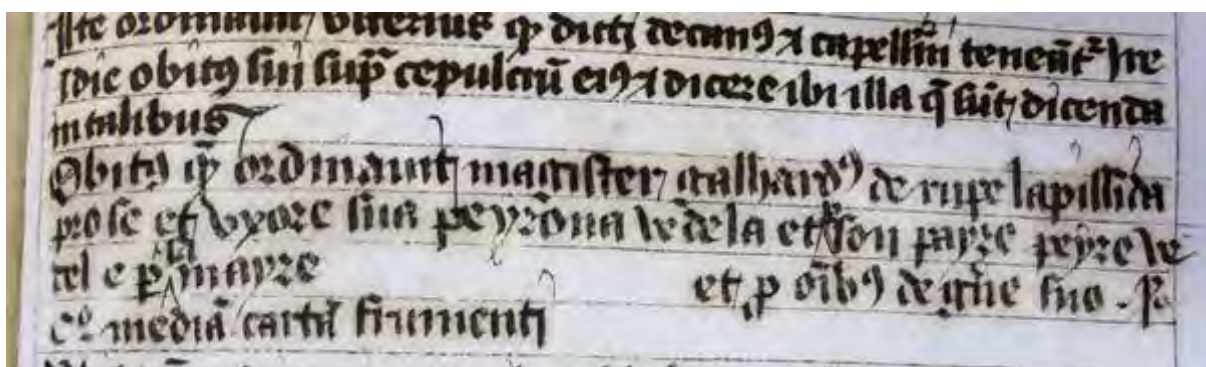 Ite ordinauit ulterius qp dicti decan9 ⁊ capellāi teneāt hre
die obit9 sui sup̄ cepulcrū ei9 ⁊ dicere ibi illa q̄ sūt dicenda
in talibus
Obit9 qp ordinauit magister galhard9 de rupe lapissida
pro se et vxore sua peyrōna vedela et son payre peyre ve
del e p̲ la mayre et p̲ oīb9 de gn̄e suo .
mediā cartā frumenti